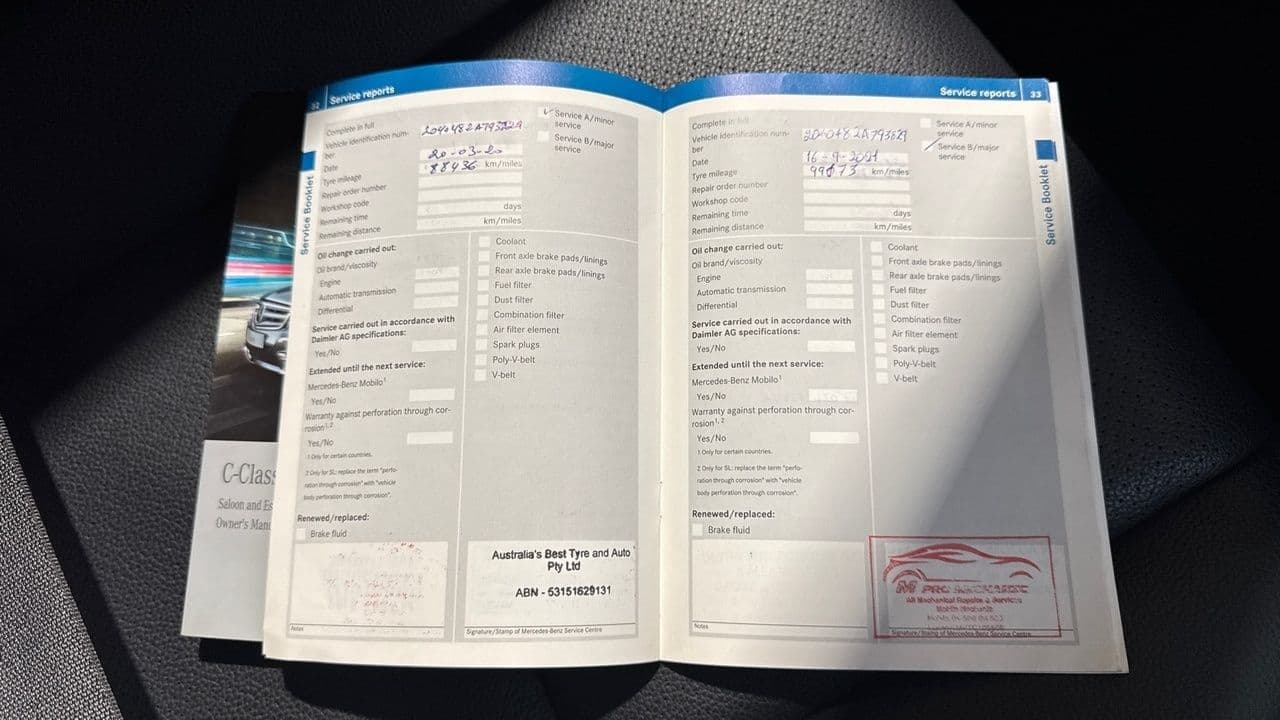 32 Service reports
Complete in full
Vehicle identification num-
ber
2040482A793529
Date
20-03-20
Tyre mileage
88436 km/miles
Repair order number
Workshop code
Remaining time
days
Remaining distance
km/miles
✓ Service A/minor
service
Service B/major
service
Service Booklet
Oil change carried out:
Oil brand/viscosity
Engine
Automatic transmission
Differential
Service carried out in accordance with
Daimler AG specifications:
Yes/No
Extended until the next service:
Mercedes-Benz Mobilo¹
Yes/No
Warranty against perforation through cor-
rosion¹,²
Yes/No
1 Only for certain countries.
2 Only for SL: replace the term "perfo-
ration through corrosion" with "vehicle
body perforation through corrosion".
Renewed/replaced:
Brake fluid
Coolant
Front axle brake pads/linings
Rear axle brake pads/linings
Fuel filter
Dust filter
Combination filter
Air filter element
Spark plugs
Poly-V-belt
V-belt
Australia's Best Tyre and Auto
Pty Ltd
ABN - 53151629131
Notes
Signature/Stamp of Mercedes-Benz Service Centre
C-Clas
Saloon and Es
Owner's Man
Service reports 33
Complete in full
Vehicle identification num-
ber
Date
16-9-2021
Tyre mileage
99073 km/miles
Repair order number
Workshop code
Remaining time
days
Remaining distance
km/miles
Service A/minor
service
Service B/major
service
Service Booklet
Oil change carried out:
Oil brand/viscosity
Engine
Automatic transmission
Differential
Service carried out in accordance with
Daimler AG specifications:
Yes/No
Extended until the next service:
Mercedes-Benz Mobilo¹
Yes/No
Warranty against perforation through cor-
rosion¹,²
Yes/No
1 Only for certain countries.
2 Only for SL: replace the term "perfo-
ration through corrosion" with "vehicle
body perforation through corrosion".
Renewed/replaced:
Brake fluid
Coolant
Front axle brake pads/linings
Rear axle brake pads/linings
Fuel filter
Dust filter
Combination filter
Air filter element
Spark plugs
Poly-V-belt
V-belt
M PRO MECHANIC
All Mechanical Repairs & Services
Notes
Signature/Stamp of Mercedes-Benz Service Centre